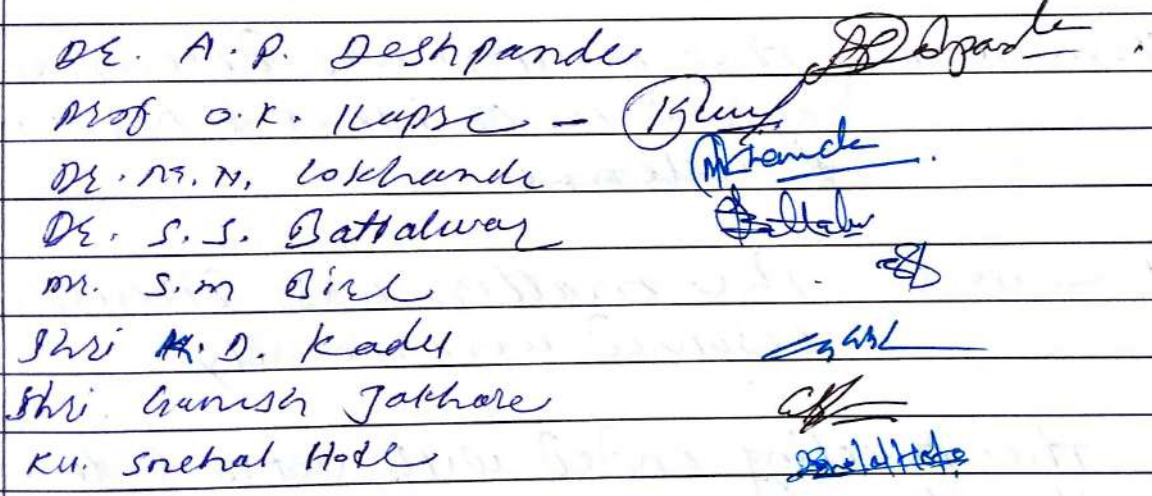 Dr. A. P. Deshpande
Prof O. K. Kapse -
Dr. M. N. Lokhande
Dr. S. S. Battalwar
Mr. S. M Bire
Shri K. D. Kadu
Shri Ganesh Jakhore
Ku. Snehal Hote SnehalHote